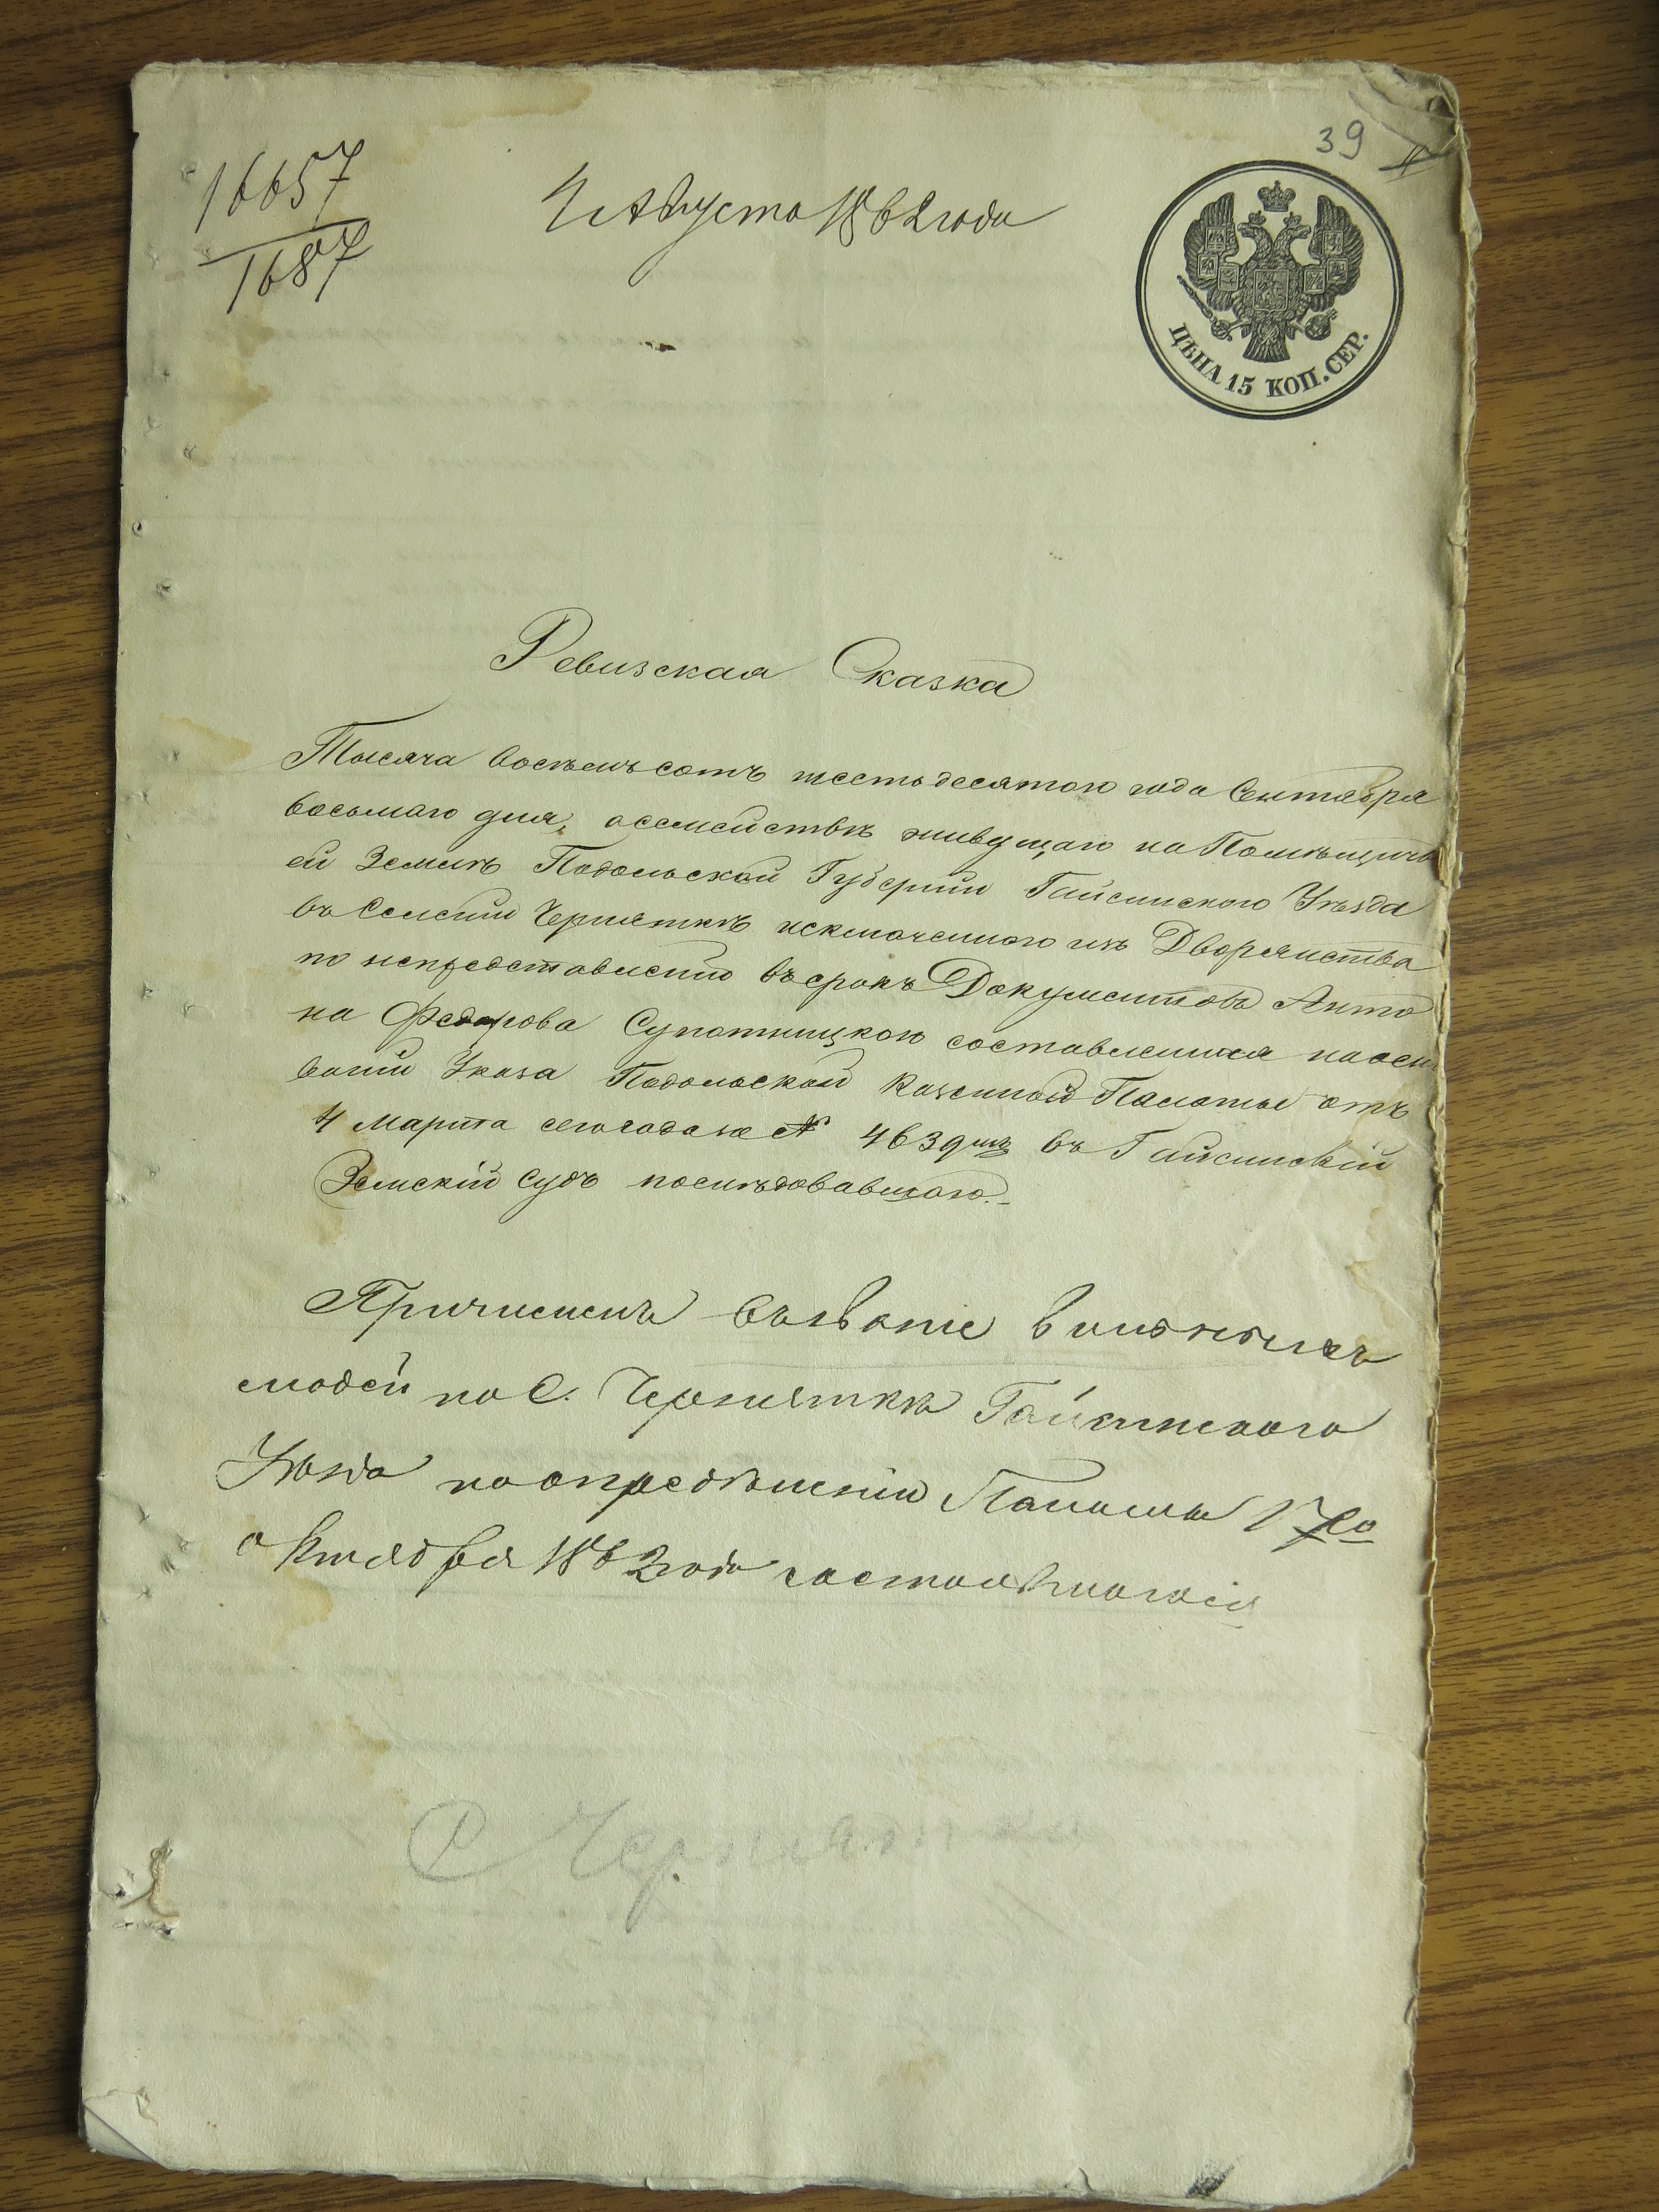 39
16657
1687
4 Августа 1862 года
ЦѢНА 15 КОП. СЕР.
Ревизская Сказка
Тысяча восемьсотъ шестьдесятого года Сентября
восьмаго дня, осемействѣ живущаго на Помѣщичь
ей Землѣ Подольской Губерніи Гайсинского Уѣзда
въ Селеніи Черняткѣ исключенного изъ Дворянства
по непредставленію въ срокъ Документовъ Анто
на Федорова Супотницкого составленная наосн
ваніи Указа Подольской Казенной Палаты отъ
4 Марта сего года за № 4639мъ въ Гайсинскій
Земскій Судъ послѣдовавшого.
Причисленъ въ званіе вольныхъ
людей по С. Черняткѣ Гайсинского
Уѣзда по опредѣленію Палаты 17го
октября 1862 года состоявшогося
С Чернятка